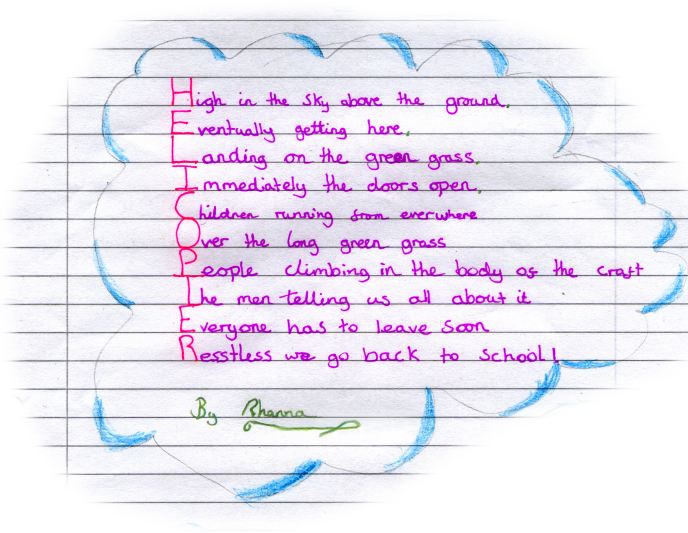 High in the sky above the ground.
Eventually getting here.
Landing on the green grass.
Immediately the doors open.
Children running from everwhere
Over the long green grass
People climbing in the body of the craft
The men telling us all about it
Everyone has to leave soon
Resstless we go back to school!
By Rhanna